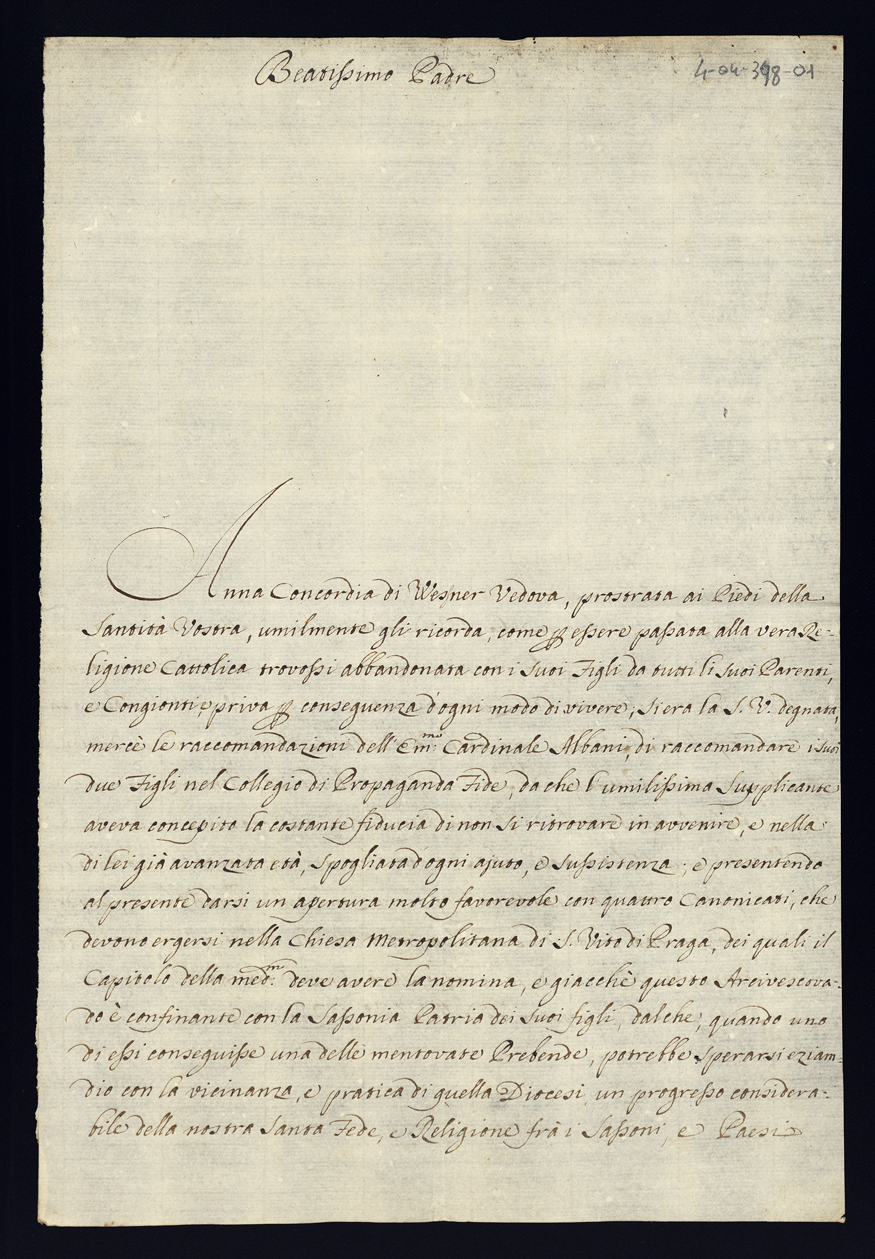 Beatissimo Padre
4-04-398-01
Anna Concordia di Wesner Vedova, prostrata ai Piedi della
Santità Vostra, umilmente gli ricorda, come per essere passata alla vera Re-
ligione Cattolica trovossi abbandonata con i suoi Figli da tutti li suoi Parenti,
e Congionti, e priva per conseguenza d'ogni modo di vivere; Si era la S. V. degnata,
mercè le raccomandazioni dell'Em:mo Cardinale Albani, di raccomandare i suoi
due Figli nel Collegio di Propaganda Fide, da che l'umilissima Supplicante
aveva concepito la costante fiducia di non si ritrovare in avvenire, e nella
di lei già avanzata età, spogliata d'ogni ajuto, e sussistenza; e presentendo
al presente darsi un apertura molto favorevole con quattro Canonicati, che
devono ergersi nella Chiesa Metropolitana di S. Vito di Praga, dei quali il
Capitolo della med:m deve avere la nomina, e giacchè questo Arcivescova-
do è confinante con la Sassonia Patria dei suoi figli, dal che, quando uno
di essi conseguisse una delle mentovate Prebende, potrebbe sperarsi eziam-
dio con la vicinanza, e pratica di quella Diocesi, un progresso considera-
bile della nostra Santa Fede, e Religione frà i Sassoni, e Paesi